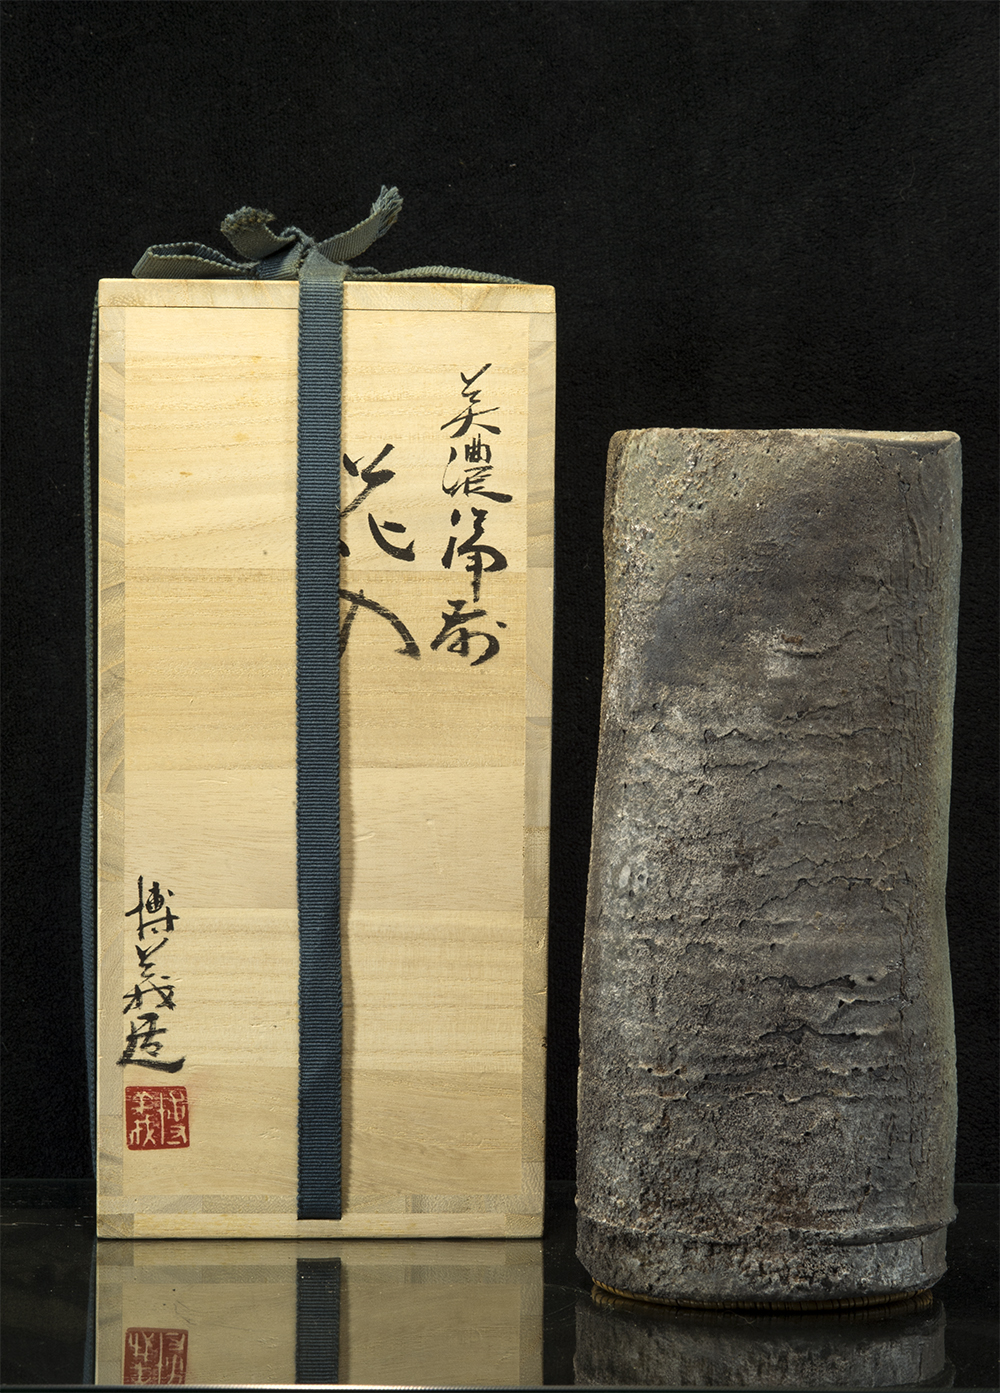 美濃伊賀
花入
博義造
博義